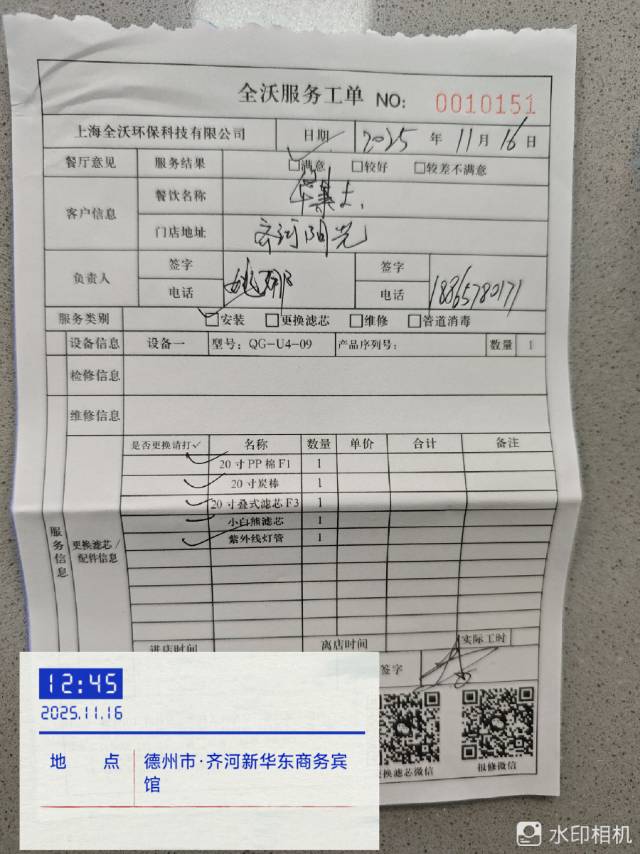 全沃服务工单 NO: 0010151
上海全沃环保科技有限公司 日期 2025 年 11 月 16 日
餐厅意见 服务结果 ☑满意 □较好 □较差不满意
客户信息 餐饮名称 华莱士
门店地址 齐河阳光
负责人 签字 签字
电话 电话 18865780171
服务类别 ☑安装 □更换滤芯 □维修 □管道消毒
设备信息 设备一 型号: QG-U4-09 产品序列号: 数量 1
检修信息
维修信息
服务信息 更换滤芯/配件信息
是否更换请打✓ 名称 数量 单价 合计 备注
✓ 20寸PP棉F1 1
✓ 20寸炭棒 1
✓ 20寸叠式滤芯F3 1
✓ 小白熊滤芯 1
✓ 紫外线灯管 1
进店时间 离店时间 实际工时
签字
更换滤芯微信 报修微信
12:45
2025.11.16
地 点 德州市·齐河新华东商务宾
馆
水印相机